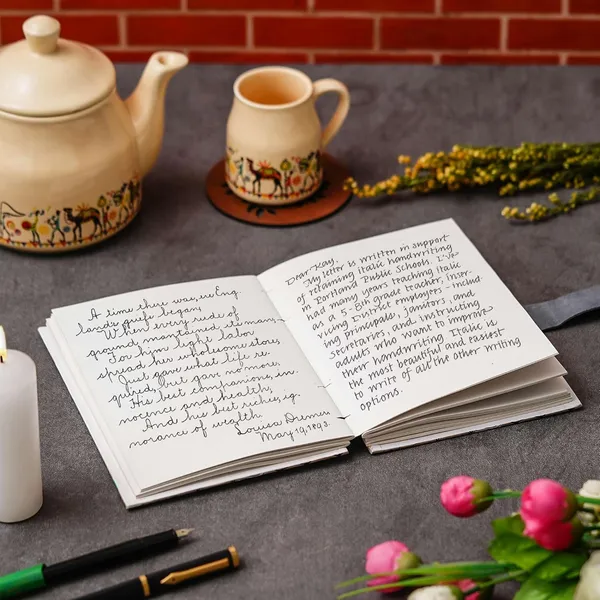 A time there was, ere Eng-
land's griefs began,
When every rood of
ground maintained its man;
For him light labor
spread her wholesome store,
Just gave what life re-
quired, but gave no more.
His best companions, in-
nocence and health;
And his best riches, ig-
norance of wealth.
Louisa
May 19, 1893.
Dear Kay,
My letter is written in support
of retaining italic handwriting
in Portland Public Schools. I've
had many years teaching Italic
as a 5-8th grade teacher, inser-
vicing District employees – includ-
ing principals, janitors, and
secretaries, and instructing
adults who want to improve
their handwriting. Italic is
the most beautiful and easiest
to write of all the other writing
options.